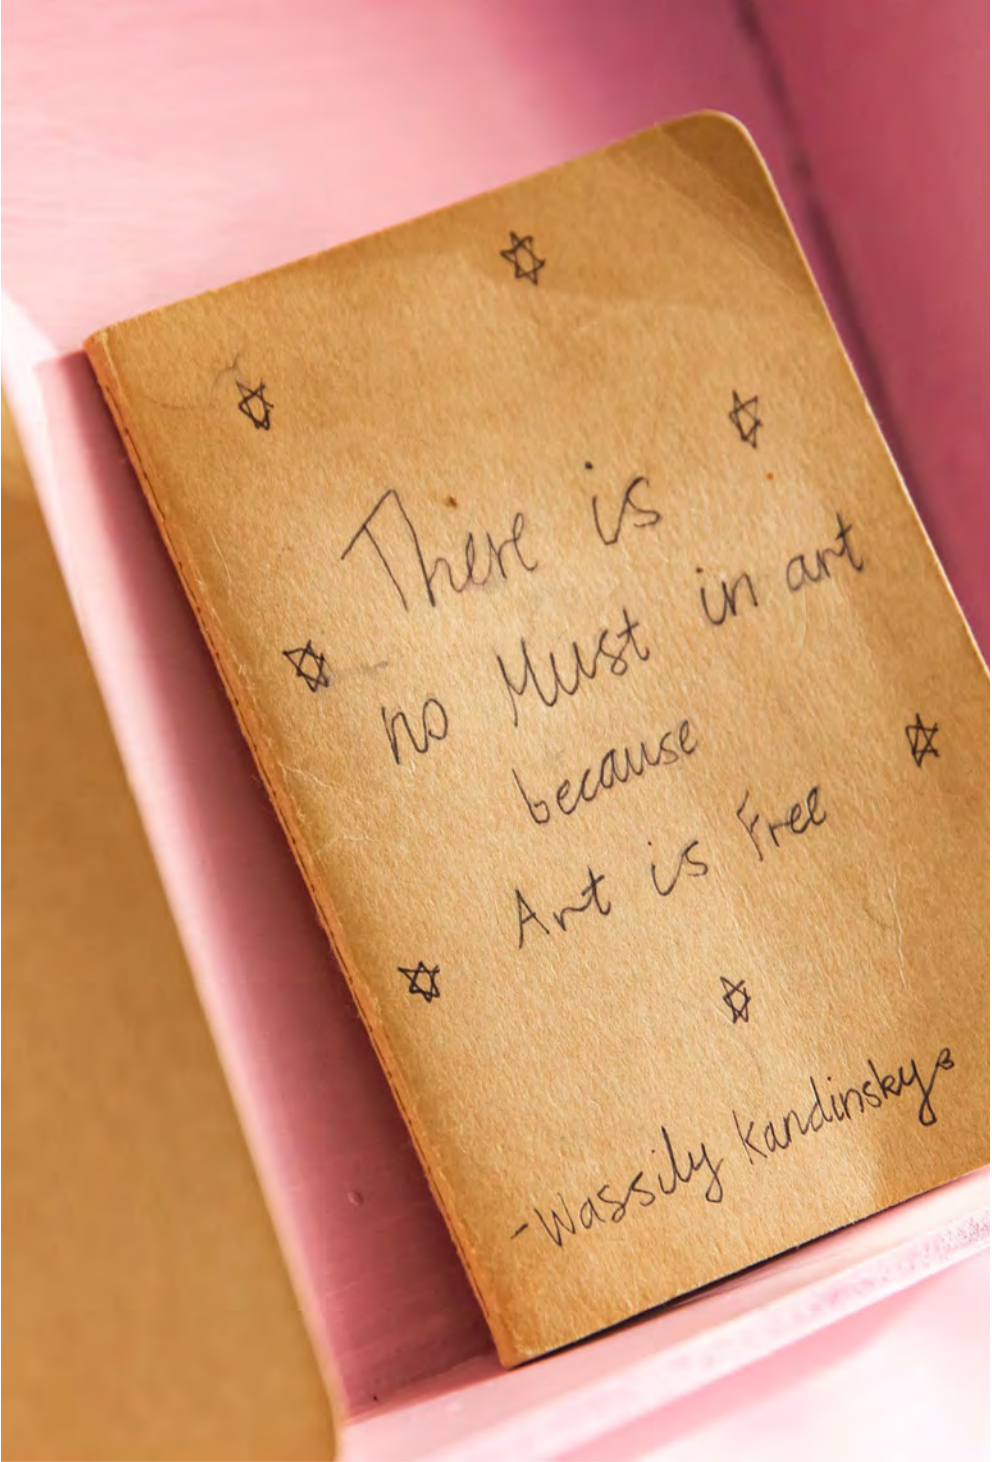 There is
no Must in art
because
Art is Free
-Wassily Kandinsky